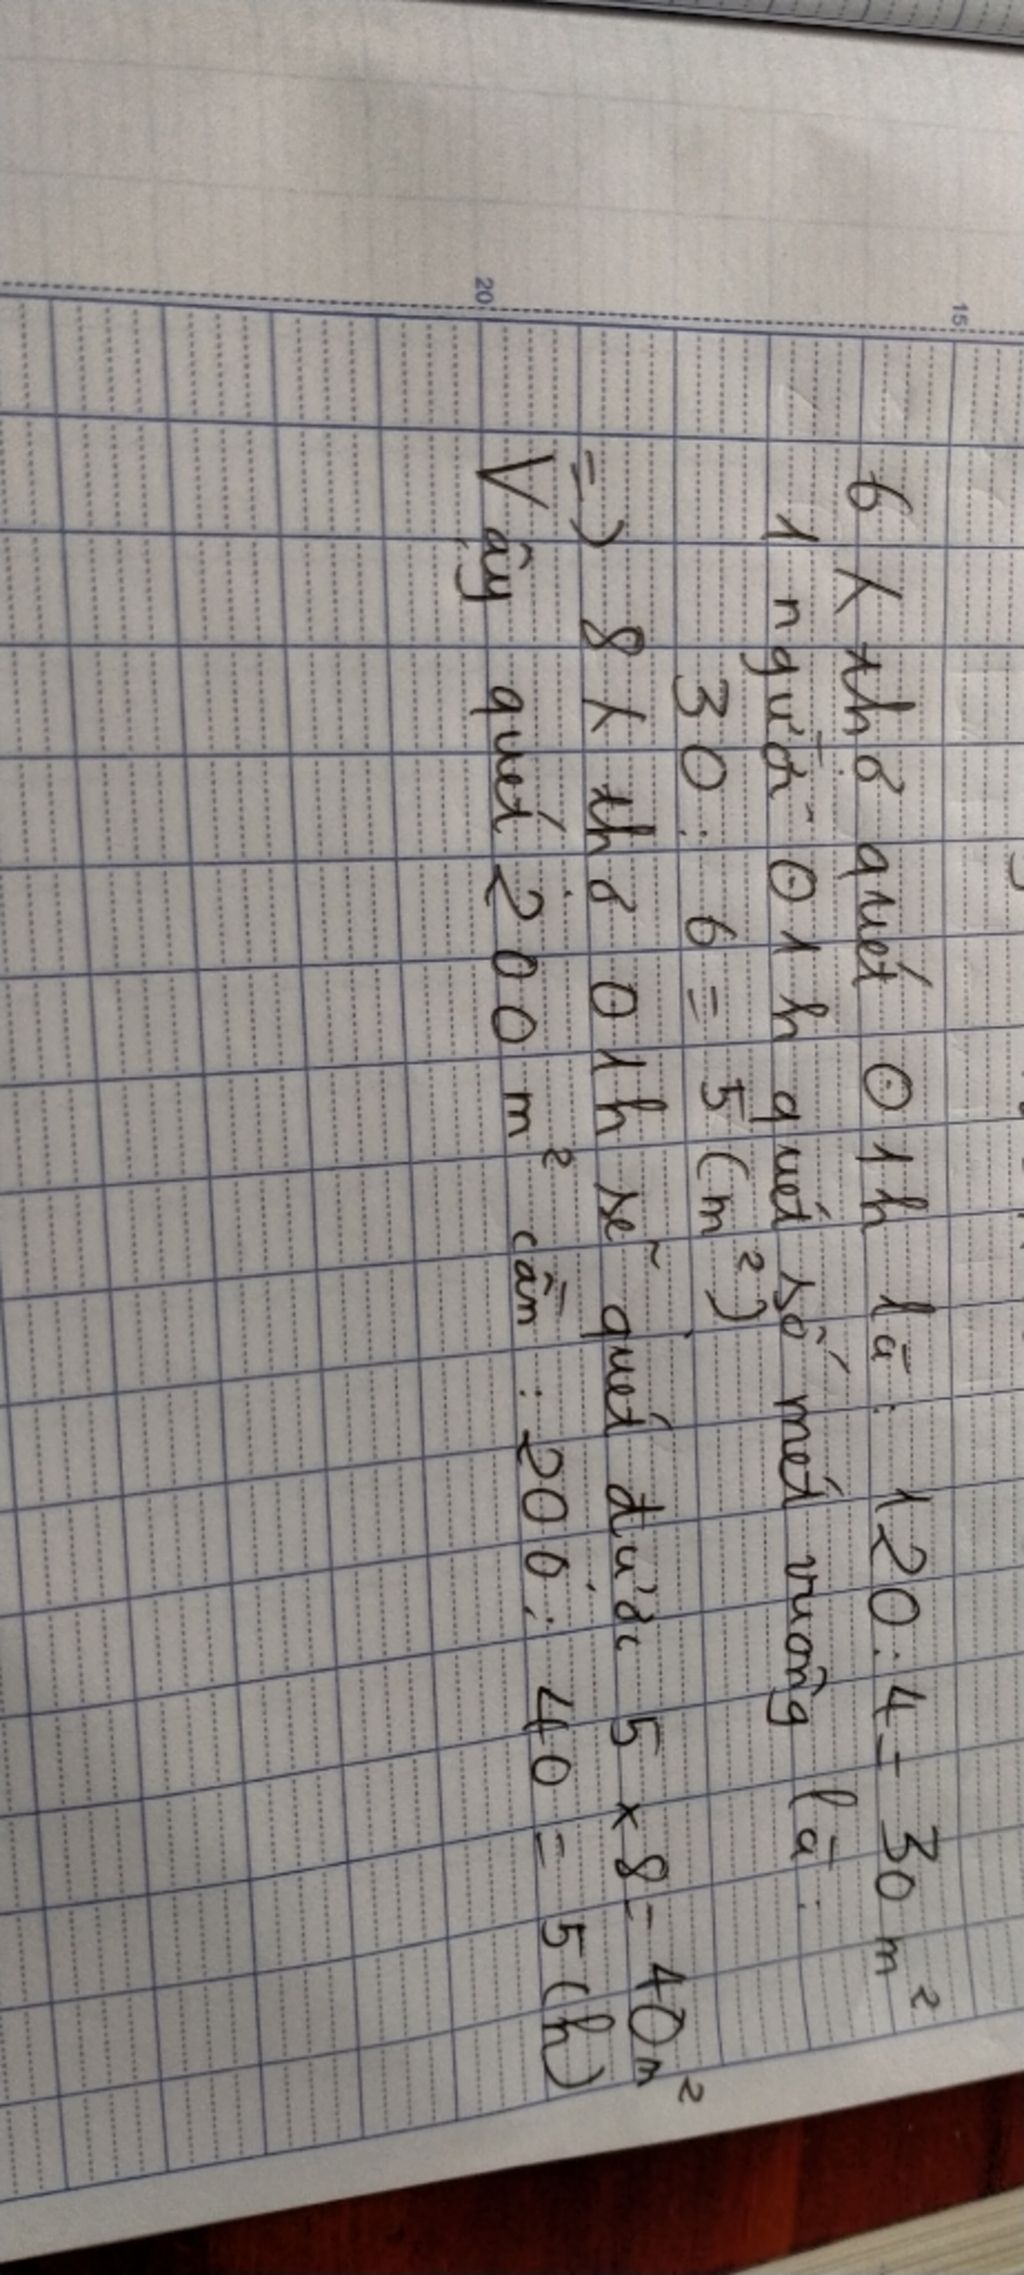 6 thợ quét 01h là: 120:4 = 30 m²
1 người 01h quét số mét vuông là:
30:6 = 5 (m²)
=> 8 thợ 01h sẽ quét được 5 x 8 = 40m²
Vậy quét 200 m² cần: 200:40 = 5 (h)
15
20